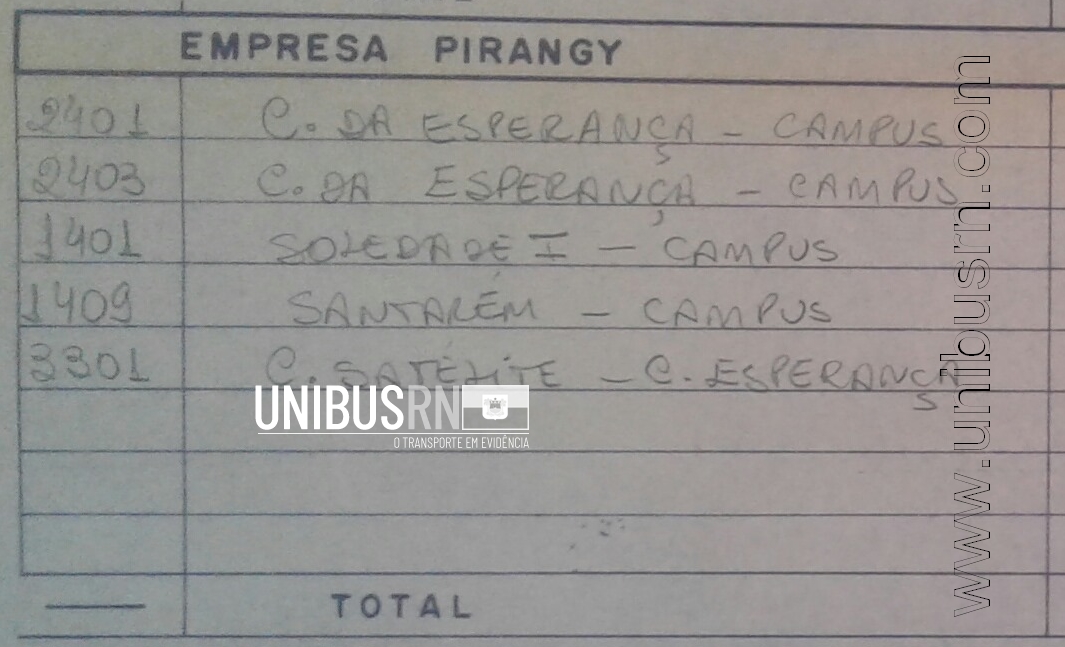 EMPRESA PIRANGY
2401 C. DA ESPERANÇA - CAMPUS
2403 C. DA ESPERANÇA - CAMPUS
1401 SOLEDADE I - CAMPUS
1409 SANTARÉM - CAMPUS
3301 C. SATÉLITE - C. ESPERANÇA
UNIBUSRN
O TRANSPORTE EM EVIDÊNCIA
TOTAL
www.unibusrn.com